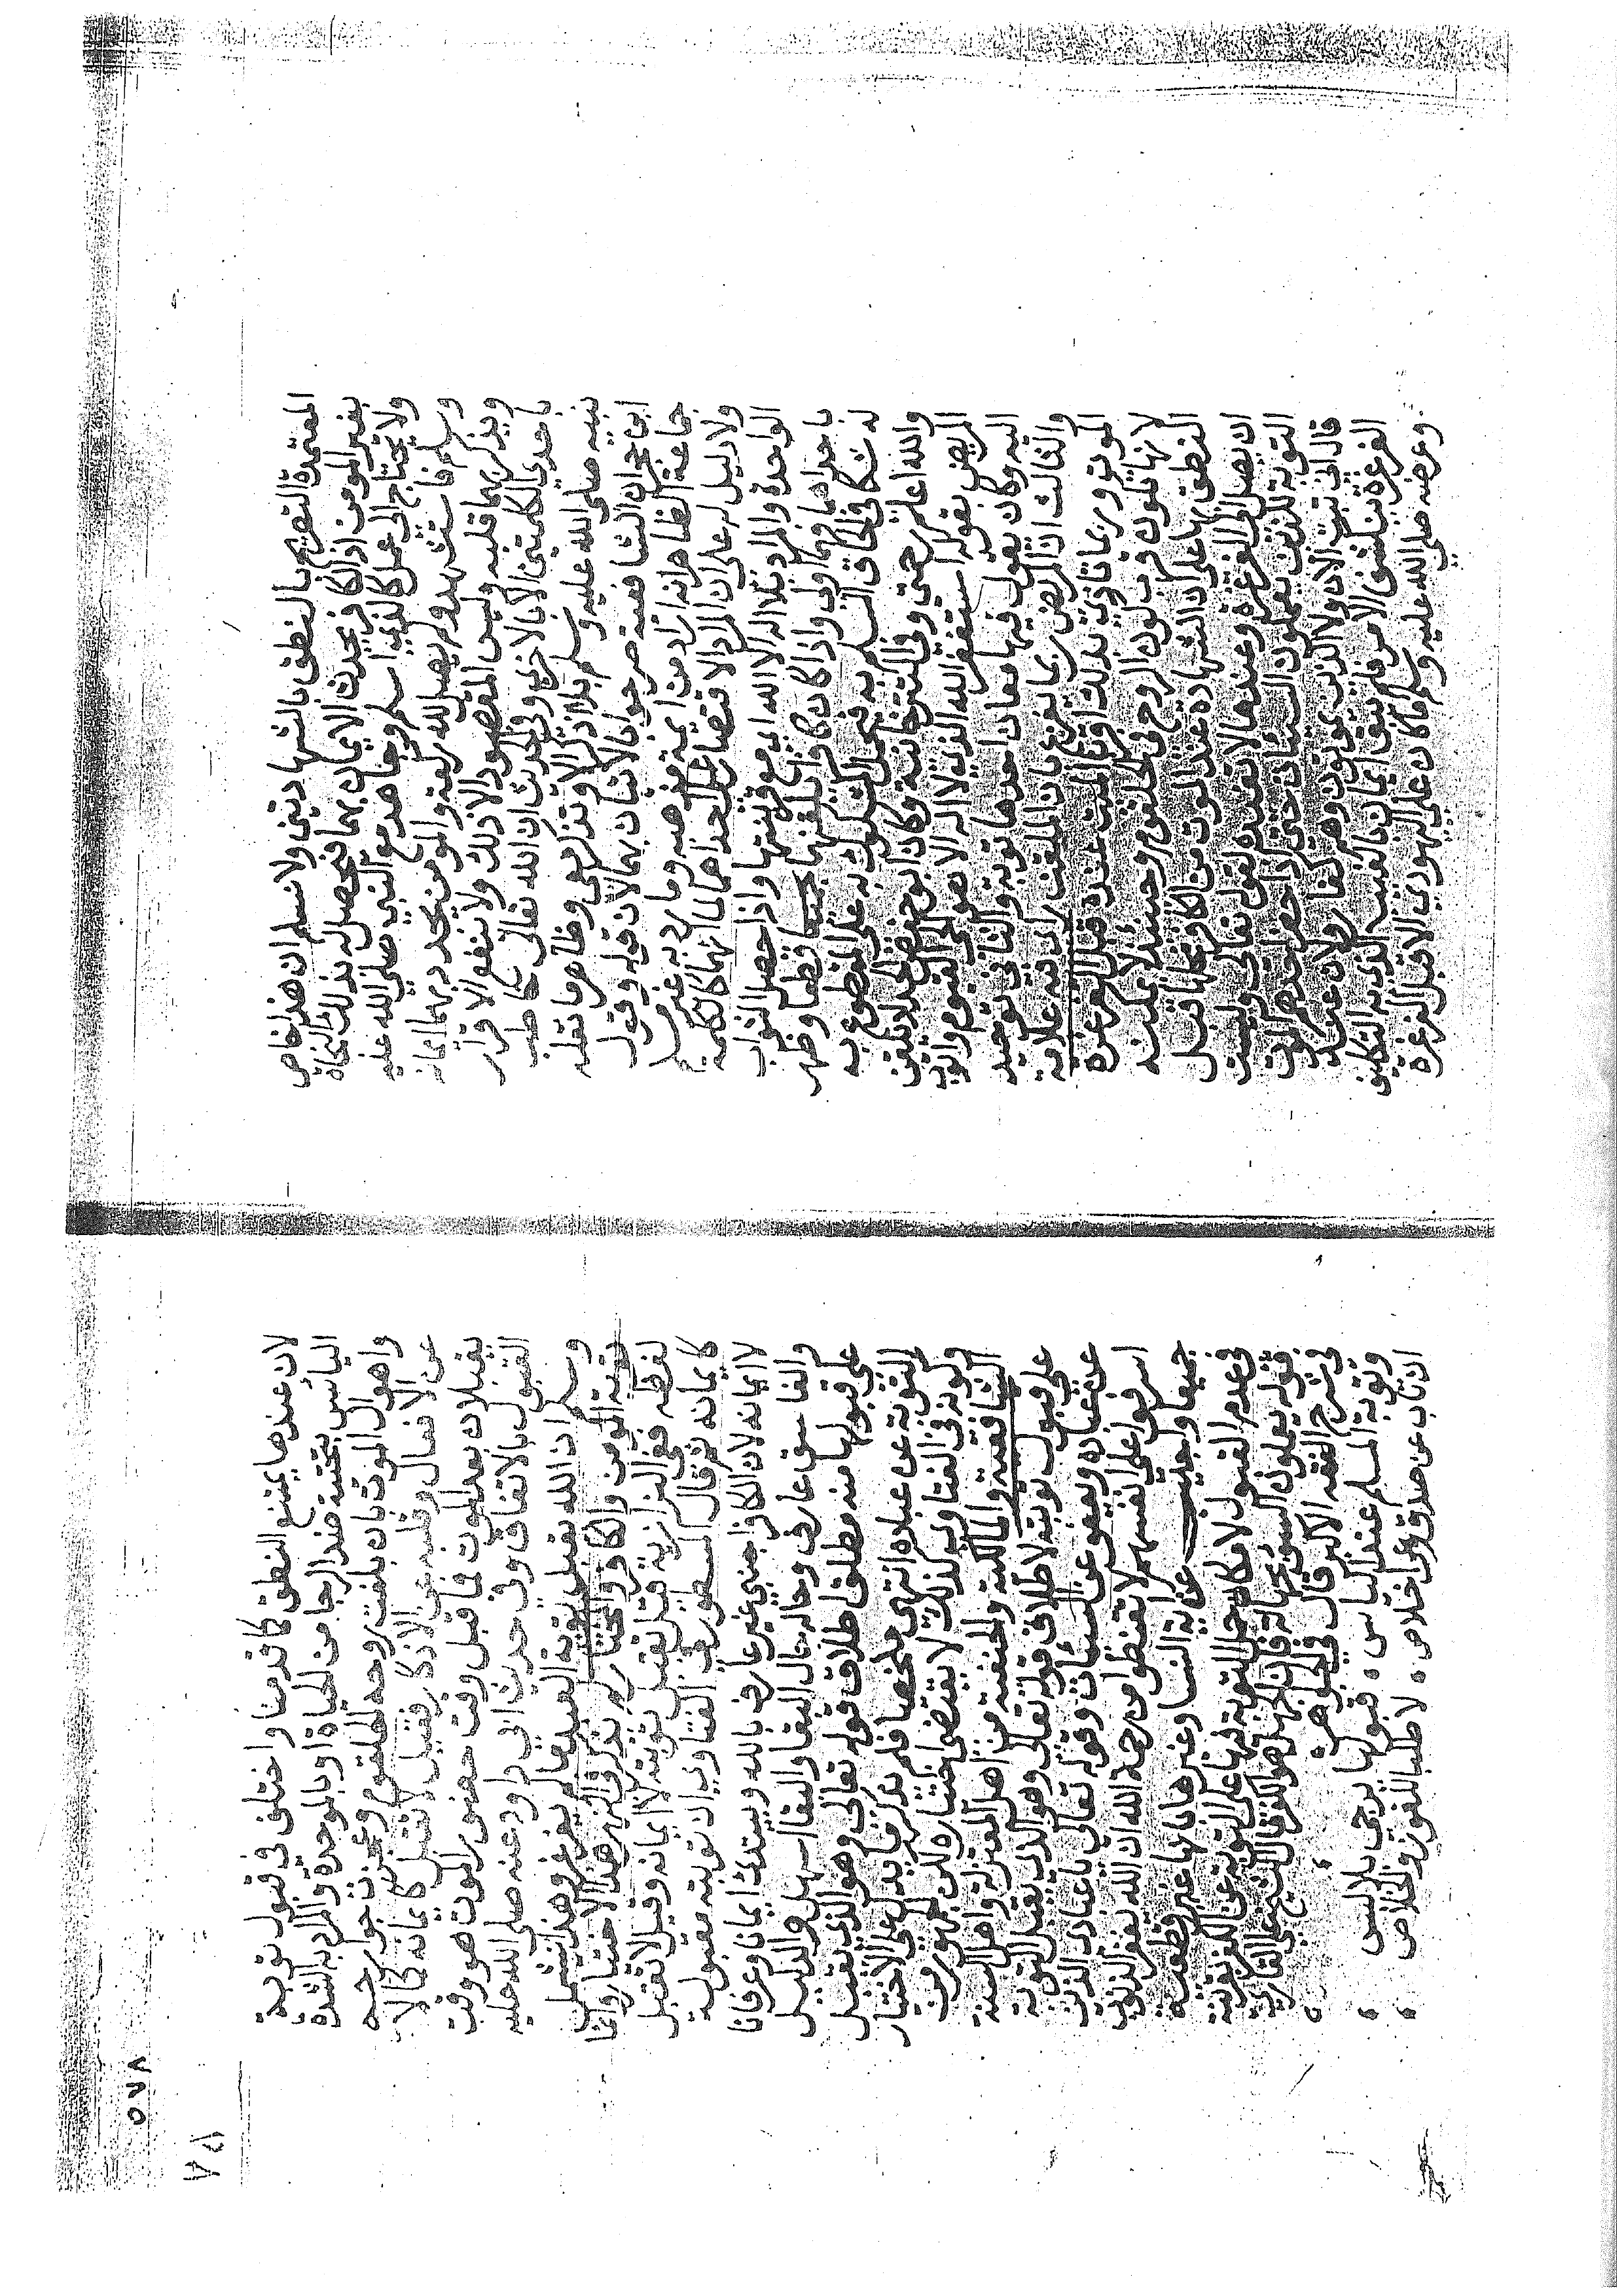 المعتمدة التصريح بالنطق بالشهادتين ولا نسلم ان هذا خاص
بغير المومن اذ الكافر يحدث الايمان بهما فيحصل له بذلك النجاة
ولا يحتاج الى عمل كالذي اسلم وجاهد مع النبي صلى الله عليه
وسلم فاستشهد ولم يصل لله ركعة والمومن يجدد بهما ايمانه
ويذكر بهما قلبه وليس المقصود الا ذلك ولا ينفع الاقرار
باحدى الكلمتين الا بالاخرى وفي الحديث ان الله تعالى خاطب
نبيه صلى الله عليه وسلم بلا اذكر الا وتذكر معي وظاهر ما نقله
ابن حجر ان الشافعية صرحوا بالاتيان بهما لان قوله وقول
جماعة الظاهر انه اراد من ايمة مذهبه وما رد به غير مسلم
ولا دليل له على ان المراد الاقتصار على احداهما لما انهما كالكلمة
الواحدة والمراد بلا اله الا الله اي مع قرينتها واذا حصل الثواب
باحداهما فبهما اولى واذا كان كافرا يلقنها قطعا وظهر
له شكا في الحاق المسلم به فيحمل المشكوك به على المقطوع به
والله اعلم حتى وفي التترخانية وكان ابو حفص الحداد يلقن
المريض بقوله استغفر الله الذي لا اله الا هو الحي القيوم واتوب
اليه وكان يقول فيها معان احدها توبة والثاني توحيد
والثالث ان المريض ربما يفزع بان الملقن راى فيه علامة
الموت وربما تاذى بذلك اقربا الميت عنده قبل الغرغرة
لانها تكون قرب كون الروح في الحلقوم وحينئذ لا يمكنه
النطق بها على ان الشهادة عند الموت من الكافر محلها قبل
ان يصل الى الغرغرة وعندها لا تفيده لقوله تعالى وليست
التوبة للذين يعملون السيئات حتى اذا حضر احدهم الموت
قال اني تبت الان ولا الذين يموتون وهم كفار ولان عند
الغرغرة ينكشف الامر فلم يبق ايمان بالغيب الذي به التكليف
وعرضه صلى الله عليه وسلم ما كان على اليهودي الا قبل الغرغرة
٥٧٨
٧٨
لان عندها يمتنع النطق كما قدمنا واختلف في قبول توبة
الياس بتحتية ضد الرجا من الحياة او بالموحدة والمراد به الشدة
واهوال الموت بان بلغت روحه الحلقوم وعجزت جوارحه
عن الافعال وقلبه عن الاذكار فقيل لا تقبل كايمانه كما لا
يقبلان بعد الموت فما قبل وقت حضور الموت هو وقت
القبول بالاتفاق وفي حديث ابي داود عنه صلى الله عليه
وسلم ان الله تقبل توبة العبد ما لم يغرغر وهذا يشمل
توبة المومن والكافر والمختار لم يذكر في النهر هذا الاختيار وانما
لفظه ففي البزازية قيل تقبل توبته لا ايمانه وقيل لا تقبل
كايمانه ثم قال المسطور في الفتاوى ان توبته مقبولة
لا ايمانه لان الكافر اجنبي غير عارف بالله ويبتدئ ايمانا وعرفانا
والفاسق عارف وحاله حال البقا والبقا اسهل والدليل
على قبولها منه مطلقا اطلاق قوله تعالى وهو الذي يقبل
التوبة عن عباده انتهى ملخصا فلم يذكر ما يدل على الاختيار
وكونه في الفتاوى كذلك لا يقتضي اختياره لكن جمهور من
الشافعية والمالكية والحنفية من اهل المعتزلة واهل السنة
على قبول توبته لاطلاق قوله تعالى وهو الذي يقبل التوبة
عن عباده ويعفو عن السيئات وقوله تعالى يا عبادي الذين
اسرفوا على انفسهم لا تقنطوا من رحمة الله ان الله يغفر الذنوب
جميعا واجيب عن اية النسا وغيرها بانها غير قطعية
في عدم القبول لامكان حمل التوبة فيها على التوبة عن الكفر بقرينة
قوله يعملون السوء بجهالة فان الجهل هو الكفر قال الشيخ علي القاري
في شرح الفقه الاكبر قال في الجواهر
وتوبة المسلم عند الياس قبولها يرجى بلا لبس
ان تاب عن صدق وعن اخلاص لاطلبا للفوز والخلاص